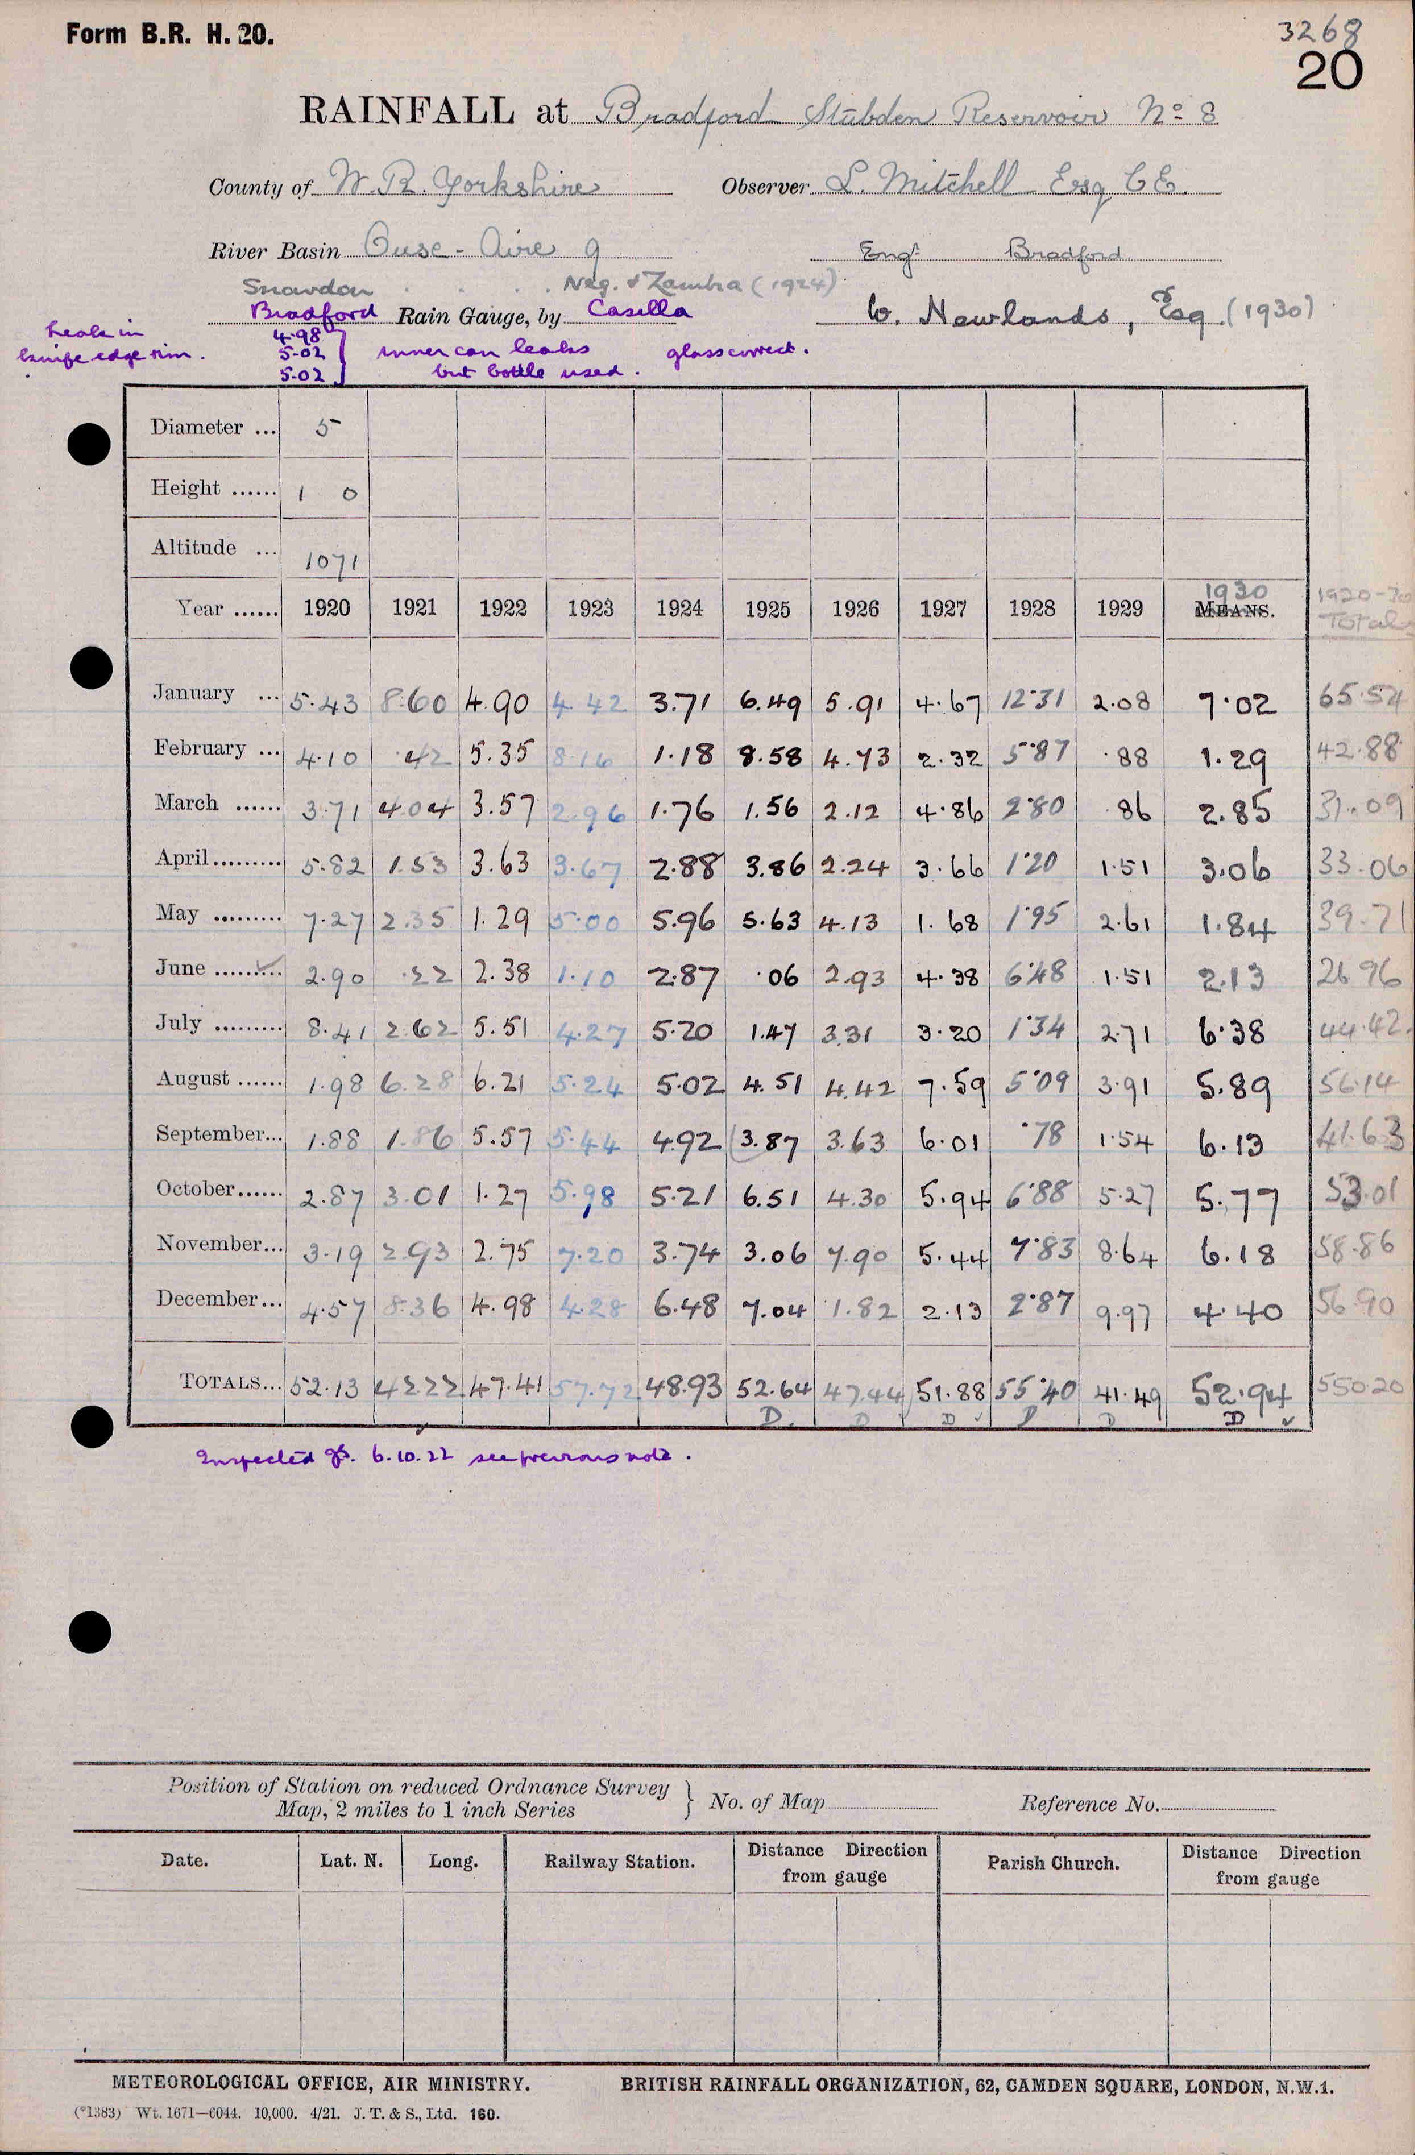 Form B.R. H. 20.
3268
20
RAINFALL at Bradford Stubden Reservoir No 8
County of W. R. Yorkshire Observer L. Mitchell Esq C E.
River Basin Ouse - Aire 9 Engr Bradford
Snowdon . . . . Neg. & Zambra (1924)
Bradford Rain Gauge, by Casella W. Newlands, Esq. (1930)
Leak in 4.98
knife edge rim. 5.02 } inner can leaks glass correct.
5.02 but bottle used.
Diameter ... 5
Height ...... 1 0
Altitude ... 1071
Year ...... 1920 1921 1922 1923 1924 1925 1926 1927 1928 1929 1930 MEANS. 1920-30 Total
January ... 5.43 8.60 4.90 4.42 3.71 6.49 5.91 4.67 12.31 2.08 7.02 65.54
February ... 4.10 .42 5.35 8.16 1.18 8.58 4.73 2.32 5.87 .88 1.29 42.88
March ...... 3.71 4.04 3.57 2.96 1.76 1.56 2.12 4.86 2.80 .86 2.85 31.09
April......... 5.82 1.53 3.63 3.67 2.88 3.86 2.24 3.66 1.20 1.51 3.06 33.06
May ......... 7.27 2.35 1.29 5.00 5.96 5.63 4.13 1.68 1.95 2.61 1.84 39.71
June ......... 2.90 .22 2.38 1.10 2.87 .06 2.93 4.38 6.48 1.51 2.13 26.96
July ......... 8.41 2.62 5.51 4.27 5.20 1.47 3.31 3.20 1.34 2.71 6.38 44.42
August ...... 1.98 6.28 6.21 5.24 5.02 4.51 4.42 7.59 5.09 3.91 5.89 56.14
September... 1.88 1.86 5.57 5.44 4.92 3.87 3.63 6.01 .78 1.54 6.13 41.63
October...... 2.87 3.01 1.27 5.98 5.21 6.51 4.30 5.94 6.88 5.27 5.77 53.01
November... 3.19 2.93 2.75 7.20 3.74 3.06 7.90 5.44 7.83 8.64 6.18 58.86
December... 4.57 8.36 4.98 4.28 6.48 7.04 1.82 2.13 2.87 9.97 4.40 56.90
TOTALS... 52.13 42.22 47.41 57.72 48.93 52.64 47.44 51.88 55.40 41.49 52.94 550.20
D. D D D D D
Inspected 6.10.22 see previous note.
Position of Station on reduced Ordnance Survey
Map, 2 miles to 1 inch Series } No. of Map Reference No.
Date. Lat. N. Long. Railway Station. Distance Direction from gauge Parish Church. Distance Direction from gauge
METEOROLOGICAL OFFICE, AIR MINISTRY. BRITISH RAINFALL ORGANIZATION, 62, CAMDEN SQUARE, LONDON, N.W.1.
(*1383) Wt. 1671—6044. 10,000. 4/21. J. T. & S., Ltd. 160.